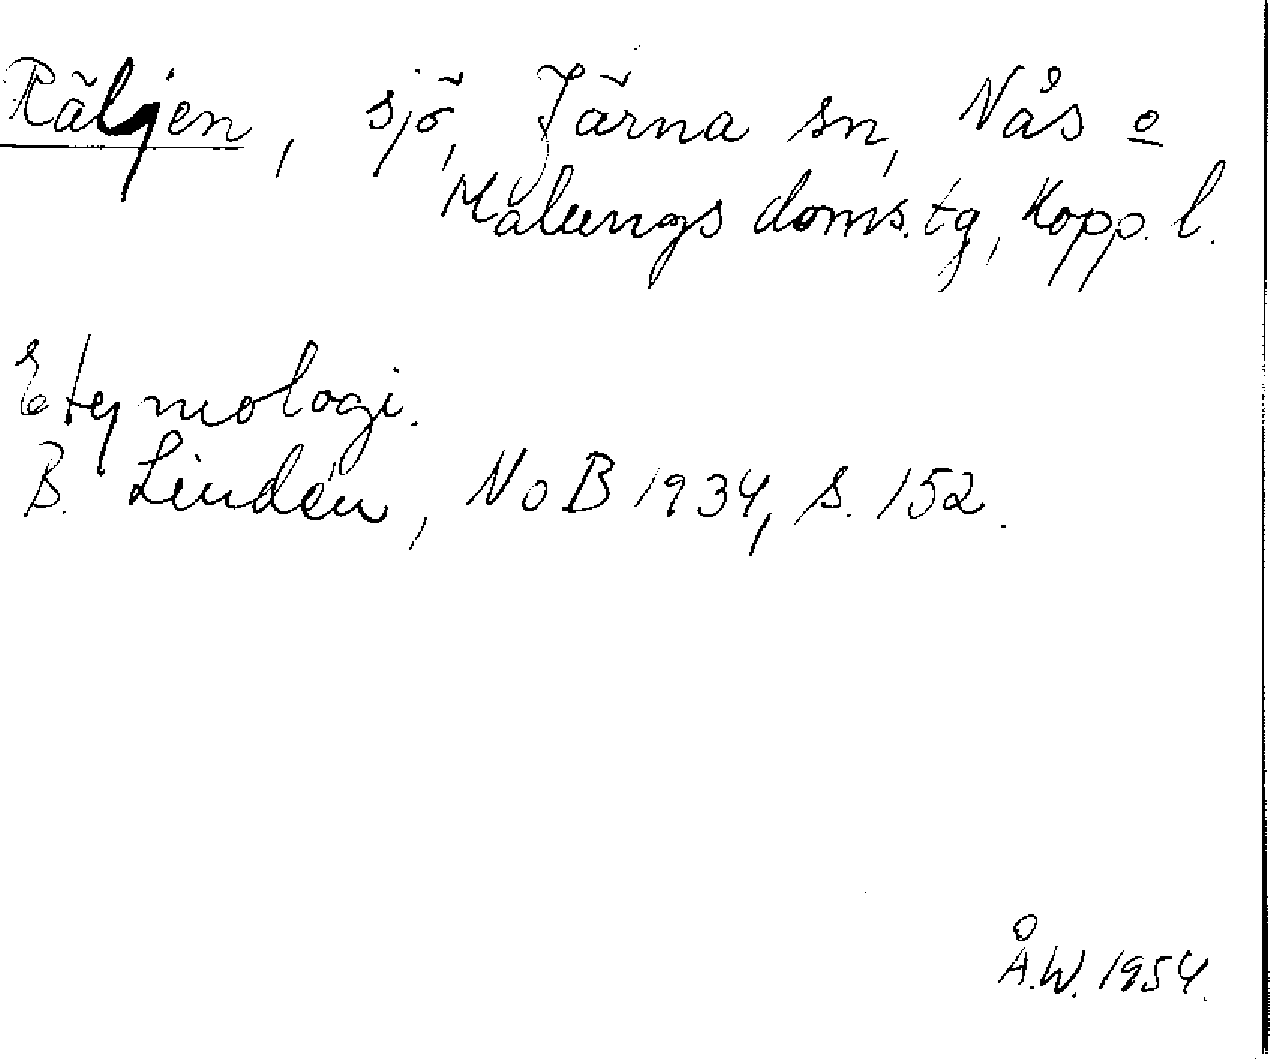 Räljen, sjö, Järna sn, Nås o
Malungs doms.tg, Kopp. l.
Etymologi.
B. Lindén, NoB 1934, s. 152.
Å.W. 1954.